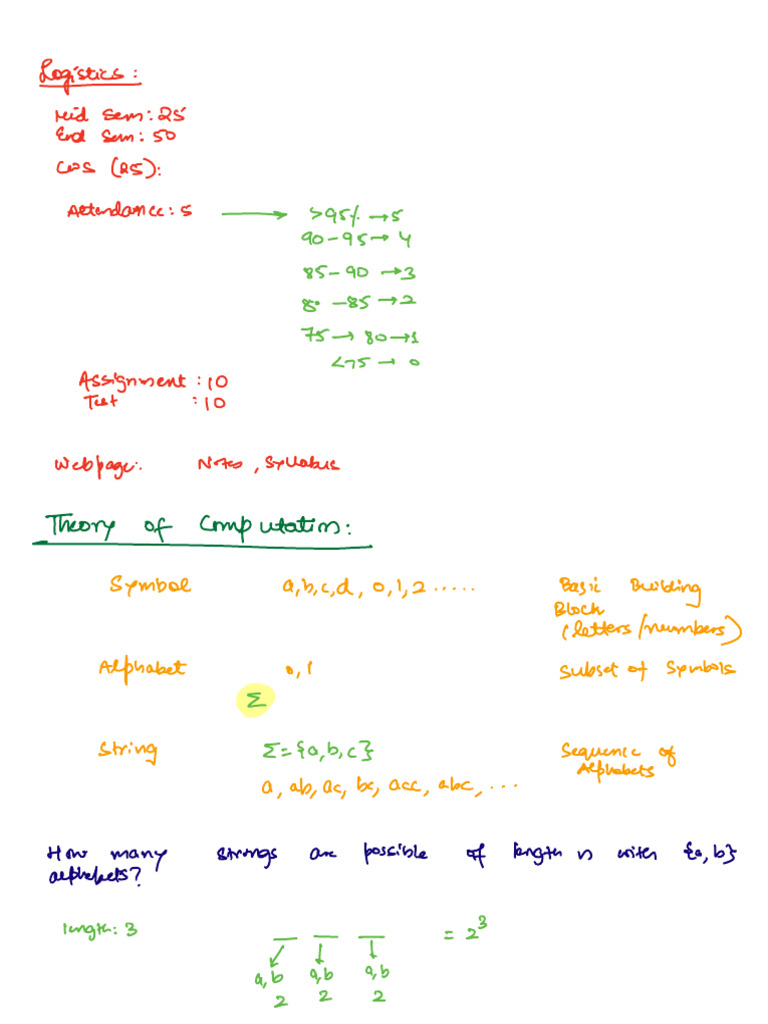 Logistics:
Mid Sem: 25
End Sem: 50
CWS (25):
Attendance: 5 → >95% → 5
90-95 → 4
85-90 → 3
80-85 → 2
75 → 80 → 1
<75 → 0
Assignment: 10
Test: 10
Webpage: Notes, Syllabus
Theory of Computation:
Symbol a,b,c,d, 0,1,2..... Basic Building
Block
(letters/numbers)
Alphabet 0,1 Subset of Symbols
Σ
String Σ={a,b,c} Sequence of
Alphabets
a, ab, ac, bc, acc, abc, ...
How many strings are possible of length n with {a,b}
alphabets?
length: 3 _ _ _ = 2³
a,b a,b a,b
2 2 2